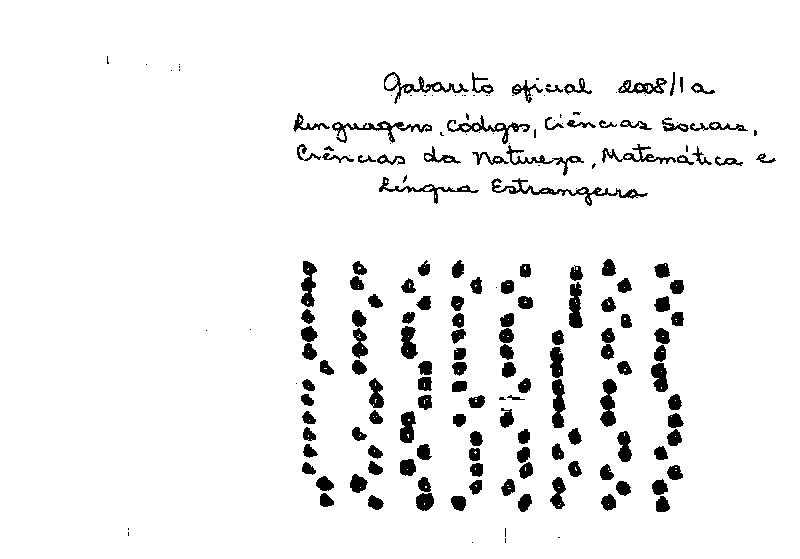 Gabarito oficial 2008/1a
Linguagens, Códigos, Ciências Sociais,
Ciências da Natureza, Matemática e
Língua Estrangeira